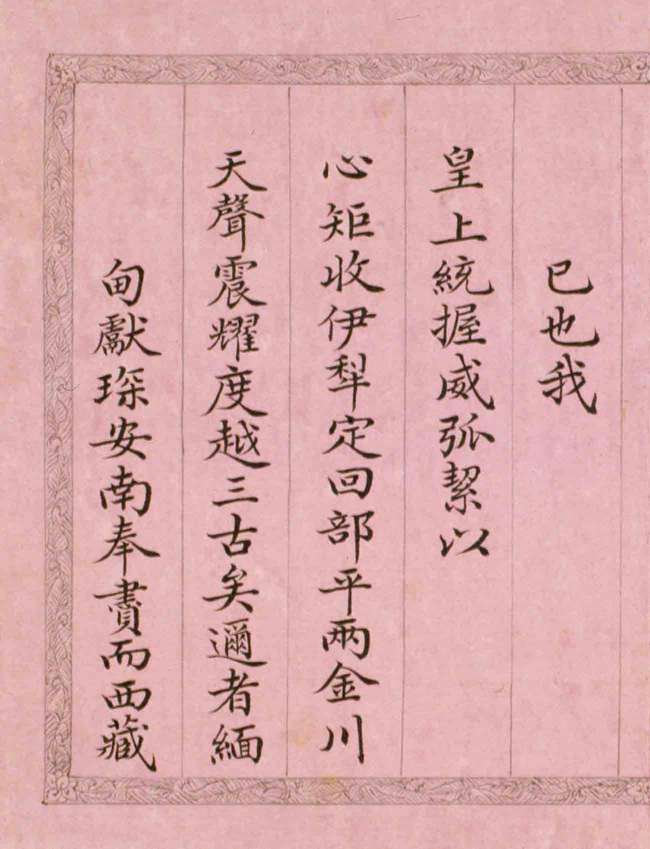 已也我
皇上統握威弧絜以
心矩收伊犂定回部平兩金川
天聲震耀度越三古矣邇者緬
甸獻琛安南奉賮而西藏